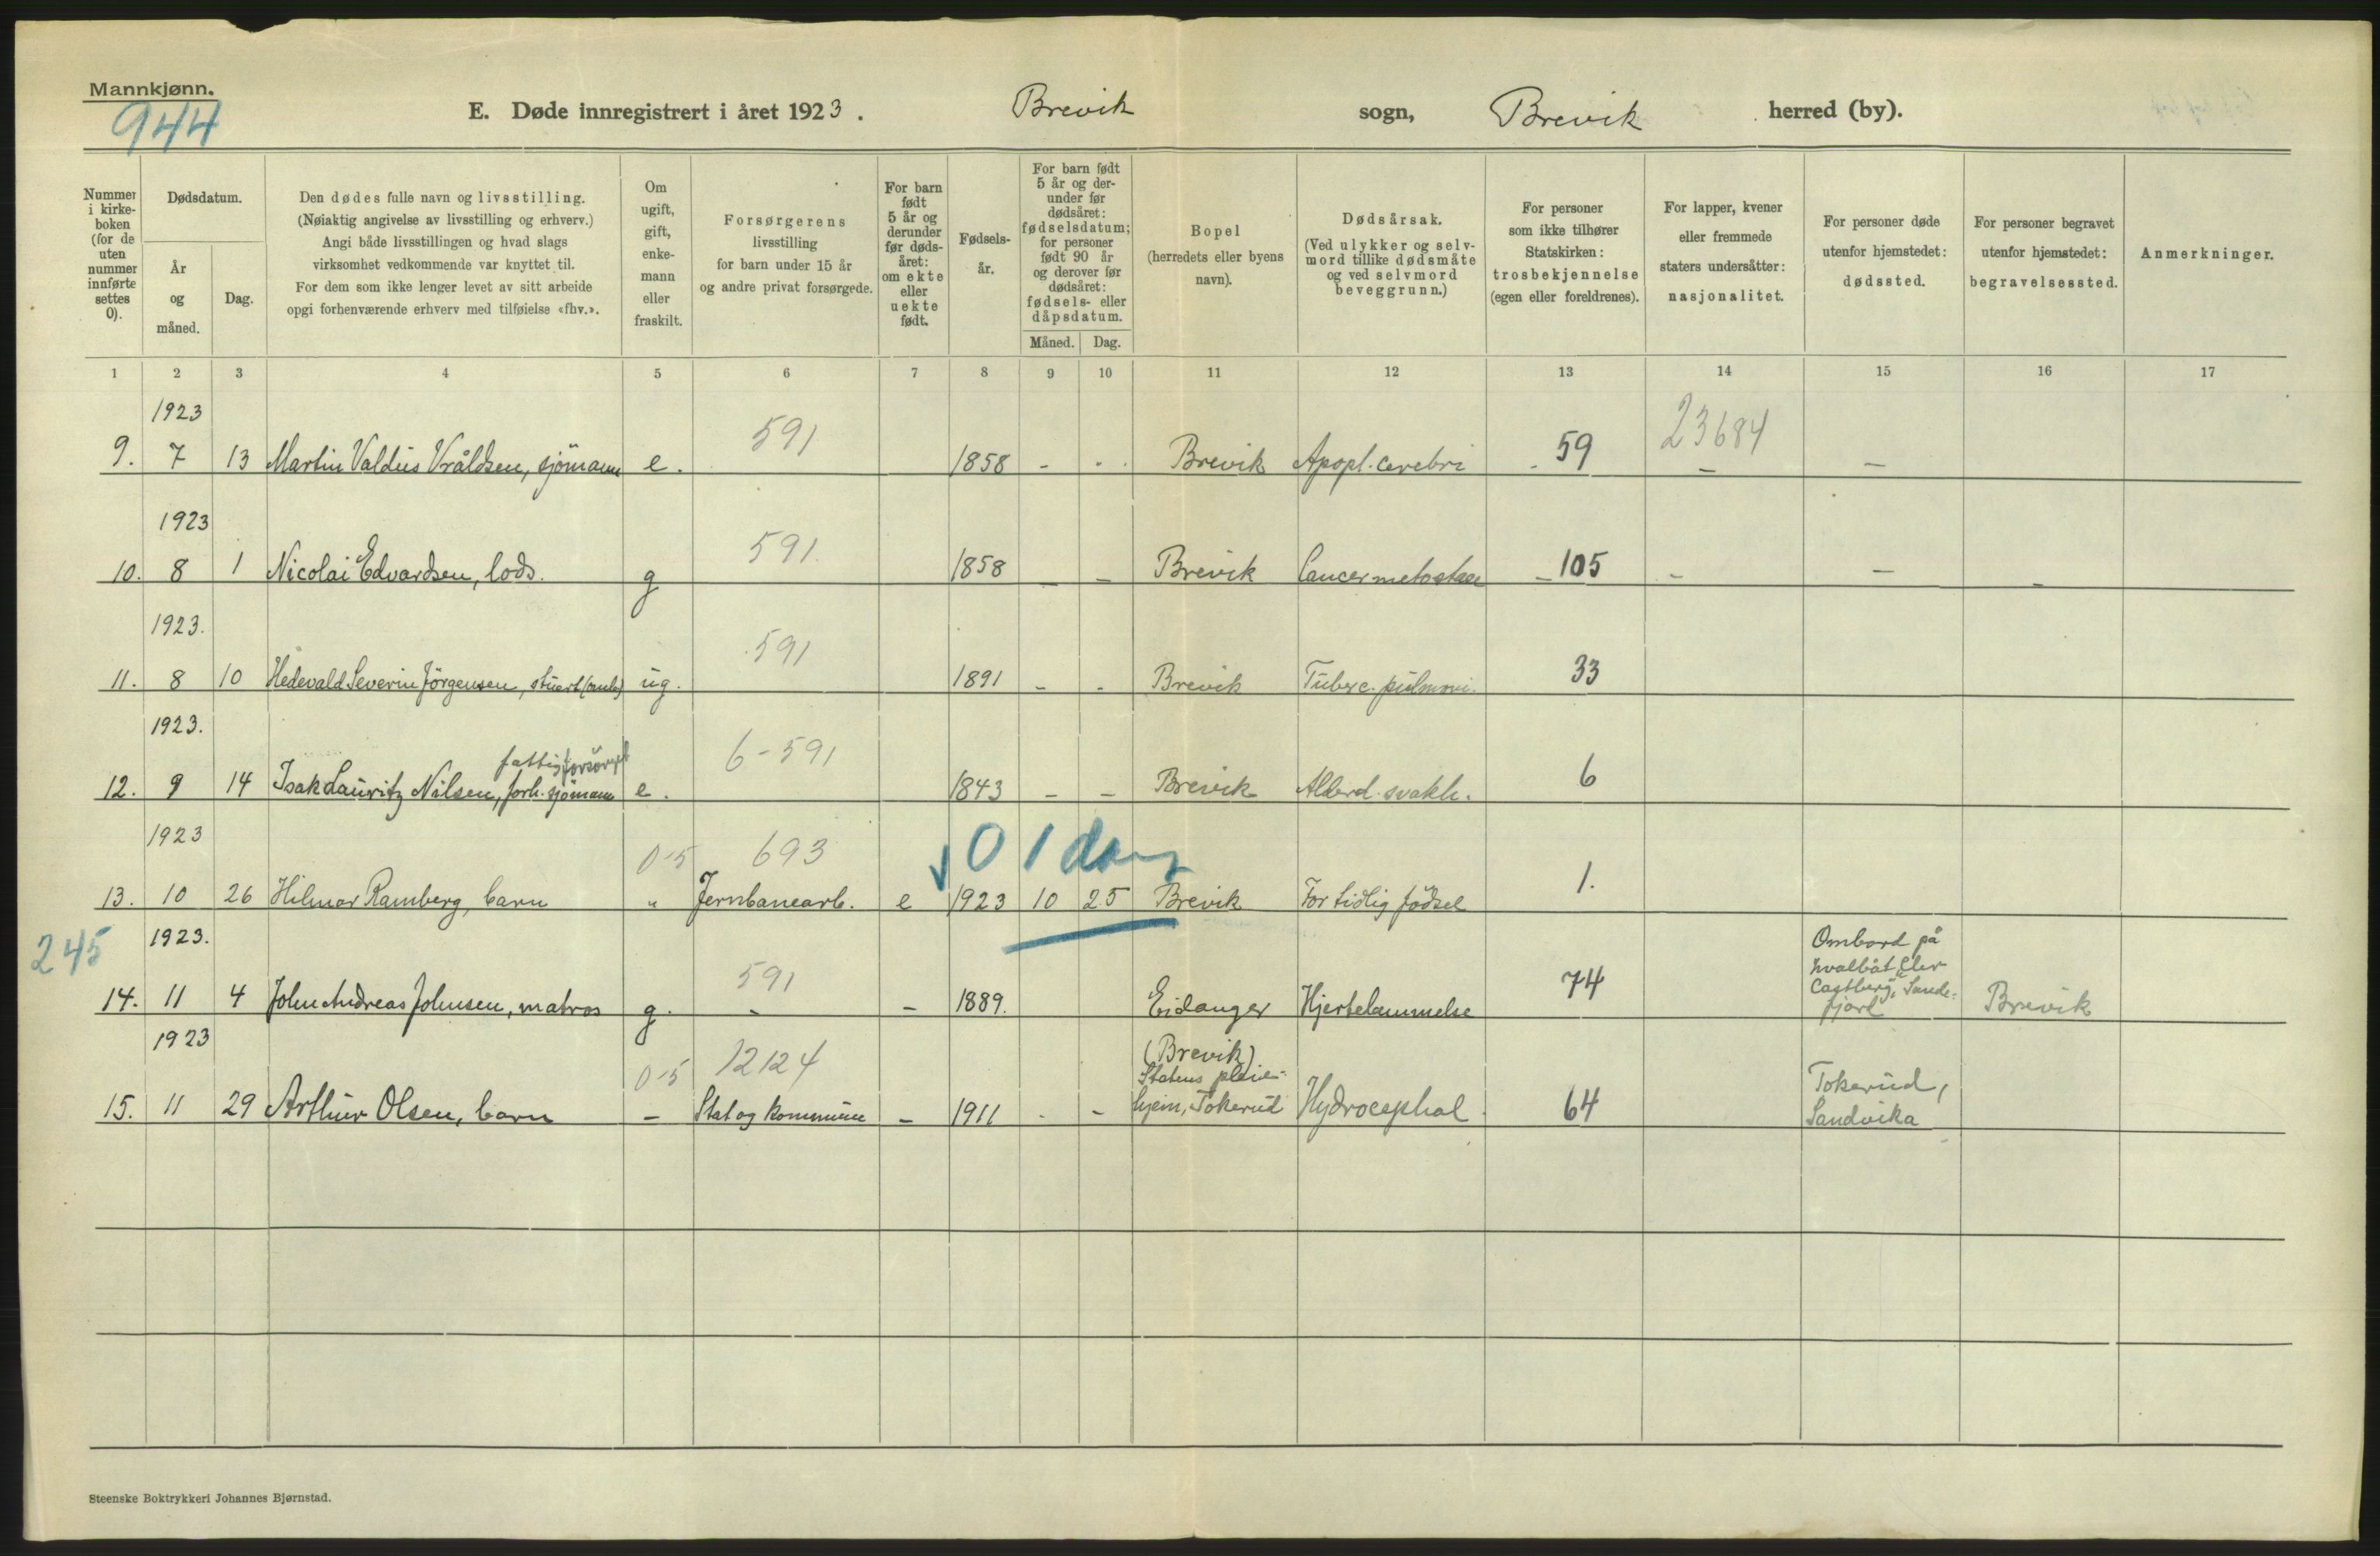 Mannkjønn.
944
E. Døde innregistrert i året 1923. Brevik sogn, Brevik herred (by).
Nummer i kirke-boken (for de uten nummer innførte settes 0).
Dødsdatum.
År og måned.
Dag.
Den dødes fulle navn og livsstilling.
(Nøiaktig angivelse av livsstilling og erhverv.)
Angi både livsstillingen og hvad slags
virksomhet vedkommende var knyttet til.
For dem som ikke lenger levet av sitt arbeide
opgi forhenværende erhverv med tilføielse «fhv.».
Om ugift, gift, enke-mann eller fraskilt.
Forsørgerens
livsstilling
for barn under 15 år
og andre privat forsørgede.
For barn født 5 år og derunder før døds-året: om ekte eller uekte født.
Fødsels-år.
For barn født 5 år og der-under før dødsåret: fødselsdatum; for personer født 90 år og derover før dødsåret: fødsels- eller dåpsdatum.
Måned. Dag.
Bopel
(herredets eller byens
navn).
Dødsårsak.
(Ved ulykker og selv-
mord tillike dødsmåte
og ved selvmord
beveggrunn.)
For personer
som ikke tilhører
Statskirken:
trosbekjennelse
(egen eller foreldrenes).
For lapper, kvener
eller fremmede
staters undersåtter:
nasjonalitet.
For personer døde
utenfor hjemstedet:
dødssted.
For personer begravet
utenfor hjemstedet:
begravelsessted.
Anmerkninger.
1 2 3 4 5 6 7 8 9 10 11 12 13 14 15 16 17
1923 591 23684
9. 7 13 Martin Valdus Vråldsen, sjömann e. 1858 - - Brevik Apopl. cerebri - 59 - -
1923 591
10. 8 1 Nicolai Edvardsen, lods. g 1858 - - Brevik Cancer metastase - 105 - - -
1923. 591
11. 8 10 Hedevald Severin Jörgensen, stuert ug. 1891 - - Brevik Tuberc. pulmon. 33
1923. fattigforsörget 6-591
12. 9 14 Isak Lauritz Nilsen, forh. sjömann e. 1843 - - Brevik Alderd. svakh. 6
1923 0-5 693 0 1 dag
13. 10 26 Hilmar Ramberg, barn " Jernbanearb. e 1923 10 25 Brevik For tidlig födsel 1.
245 1923. 591 Ombord på
hvalbåt
Castberg, Sande-
14. 11 4 John Andreas Johnsen, matros g. - - 1889. Eidanger Hjertelammelse 74 fjord Brevik
1923 0-5 12124 (Brevik)
Statens pleie- Tokerud,
15. 11 29 Arthur Olsen, barn - Stat og kommune - 1911 - - hjem, Tokerud Hydrocephal. 64 Sandvika
Steenske Boktrykkeri Johannes Bjørnstad.